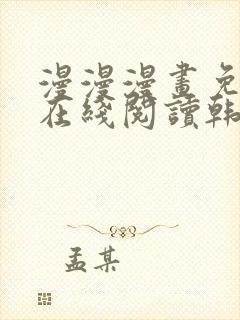 漫漫漫畫免
在綫閱讀韩
孟某